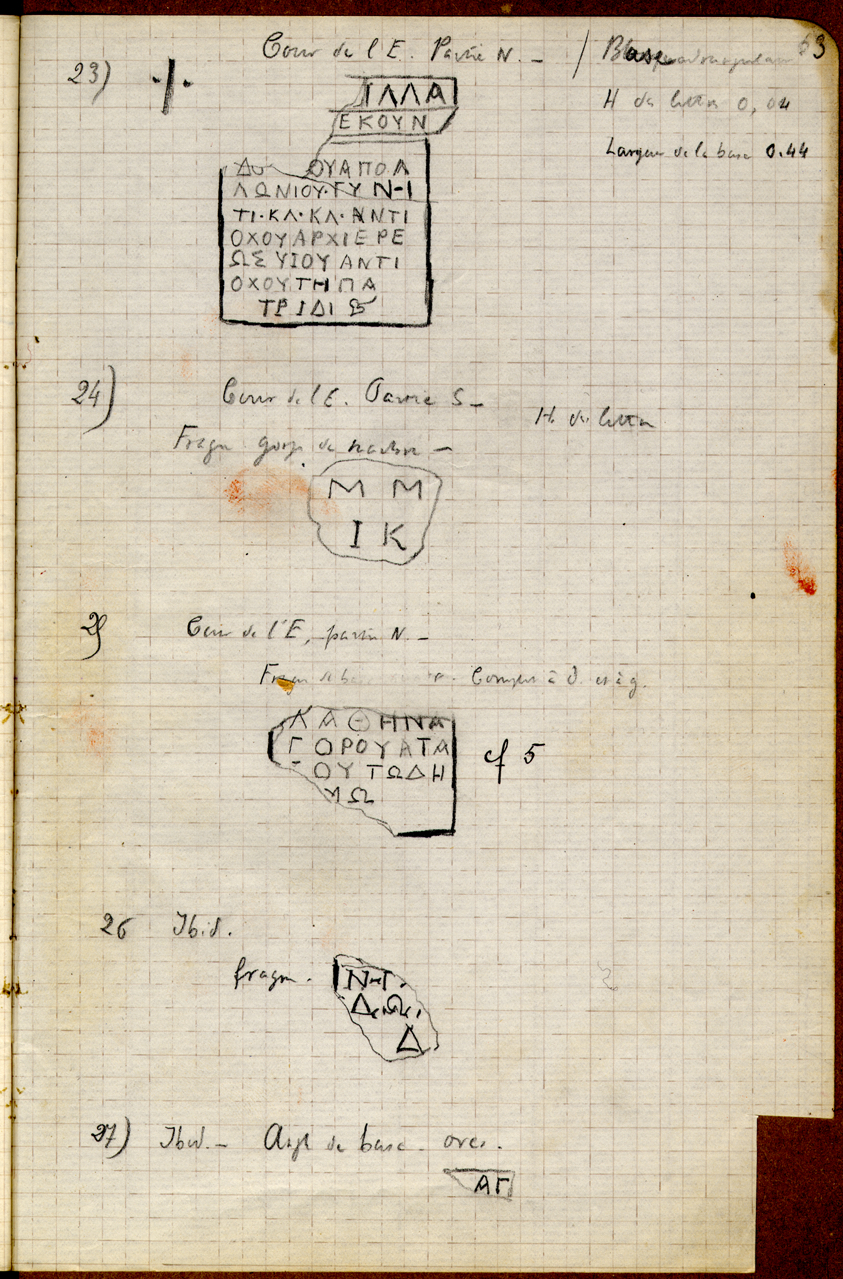 63
23) Cour de l'E. Partie N. — / Base quadrangulaire
H des lettres 0,04
Largeur de la base 0.44
ΙΛΛΑ
ΕΚΟΥΝ
ΔΟ ΟΥΑΠΟΛ
ΛΩΝΙΟΥ·ΓΥ Ν-Ι
ΤΙ·ΚΛ·ΚΛ·ΑΝΤΙ
ΟΧΟΥΑΡΧΙΕΡΕ
ΩΣΥΙΟΥΑΝΤΙ
ΟΧΟΥΤΗΠΑ
ΤΡΙΔΙ
24) Cour de l'E. Partie S —
H. des lettres
Fragm. gorge de marbre —
Μ Μ
Ι Κ
25) Cour de l'E, partie N. —
Fragm de base. Complet à d. et à g.
ΚΑΘΗΝΑ
ΓΟΡΟΥΑΤΑ
ΟΥΤΩΔΗ
ΜΩ
cf 5
26 Ibid.
fragm.
ΙΝ-Γ
Δ Ω
Δ
27) Ibid. — Angle de base. oves.
ΑΓ